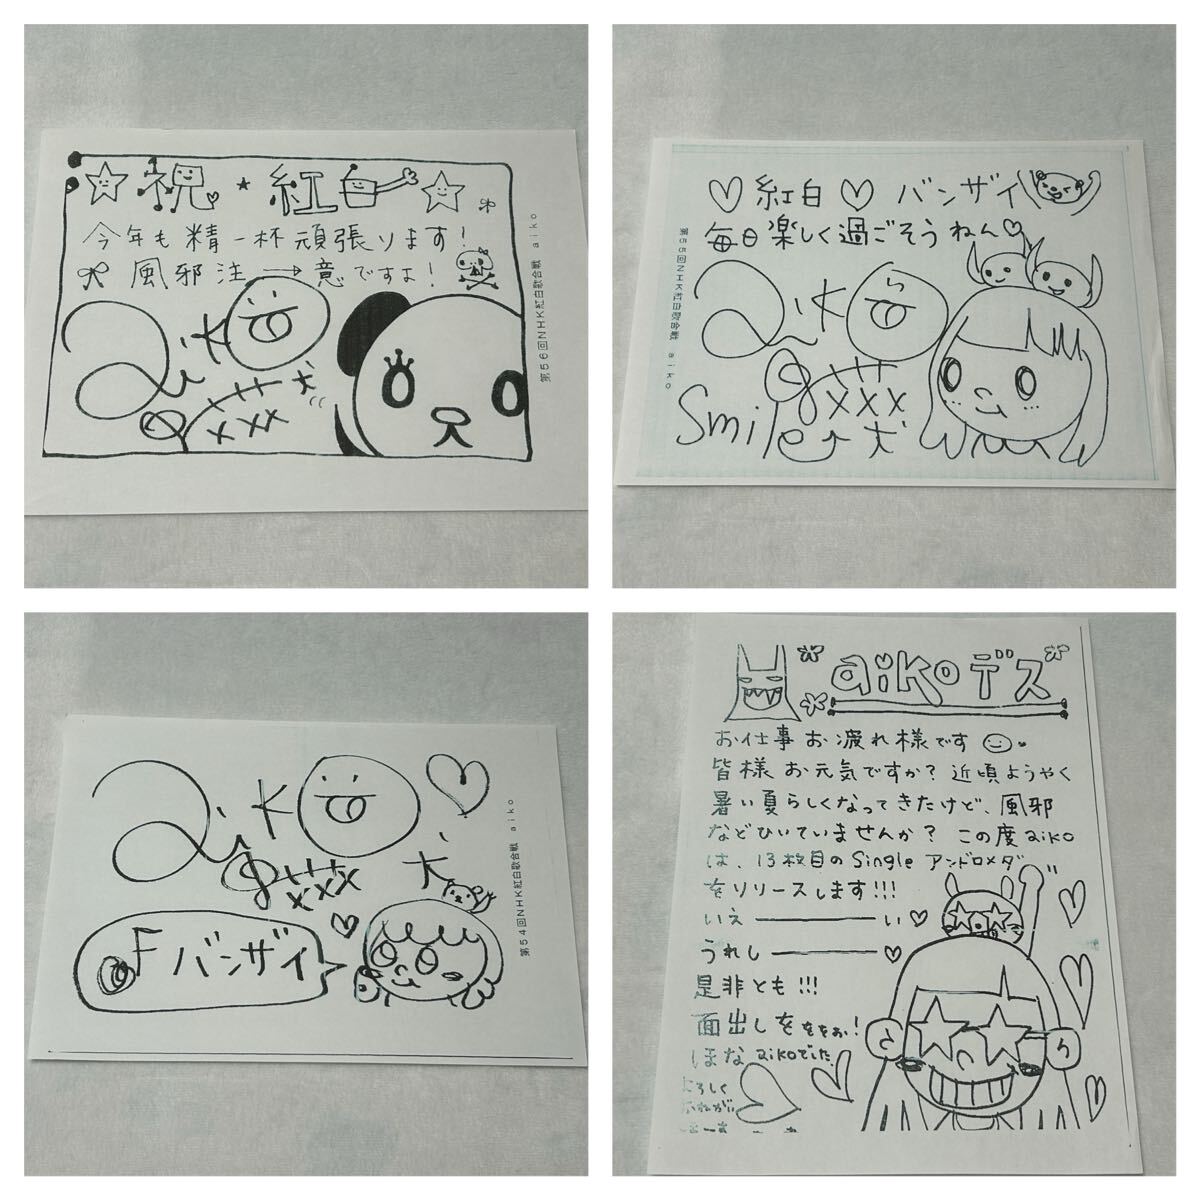 祝★紅白
今年も精一杯頑張ります!
風邪注→意ですよ!
aiko
第56回NHK紅白歌合戦 aiko
♡紅白♡バンザイ
毎日楽しく過ごそうねん♡
aiko
Smile
第55回NHK紅白歌合戦 aiko
aiko
Fバンザイ
第54回NHK紅白歌合戦 aiko
aikoデス
お仕事お疲れ様です
皆様お元気ですか?近頃ようやく
暑い夏らしくなってきたけど、風邪
などひいていませんか?この度aiko
は、13枚目のSingleアンドロメダ
をリリースします!!!
いえ――――い♡
うれし――――♡
是非とも!!!
面出しををををぉ!
ほなaikoでした
よろしく